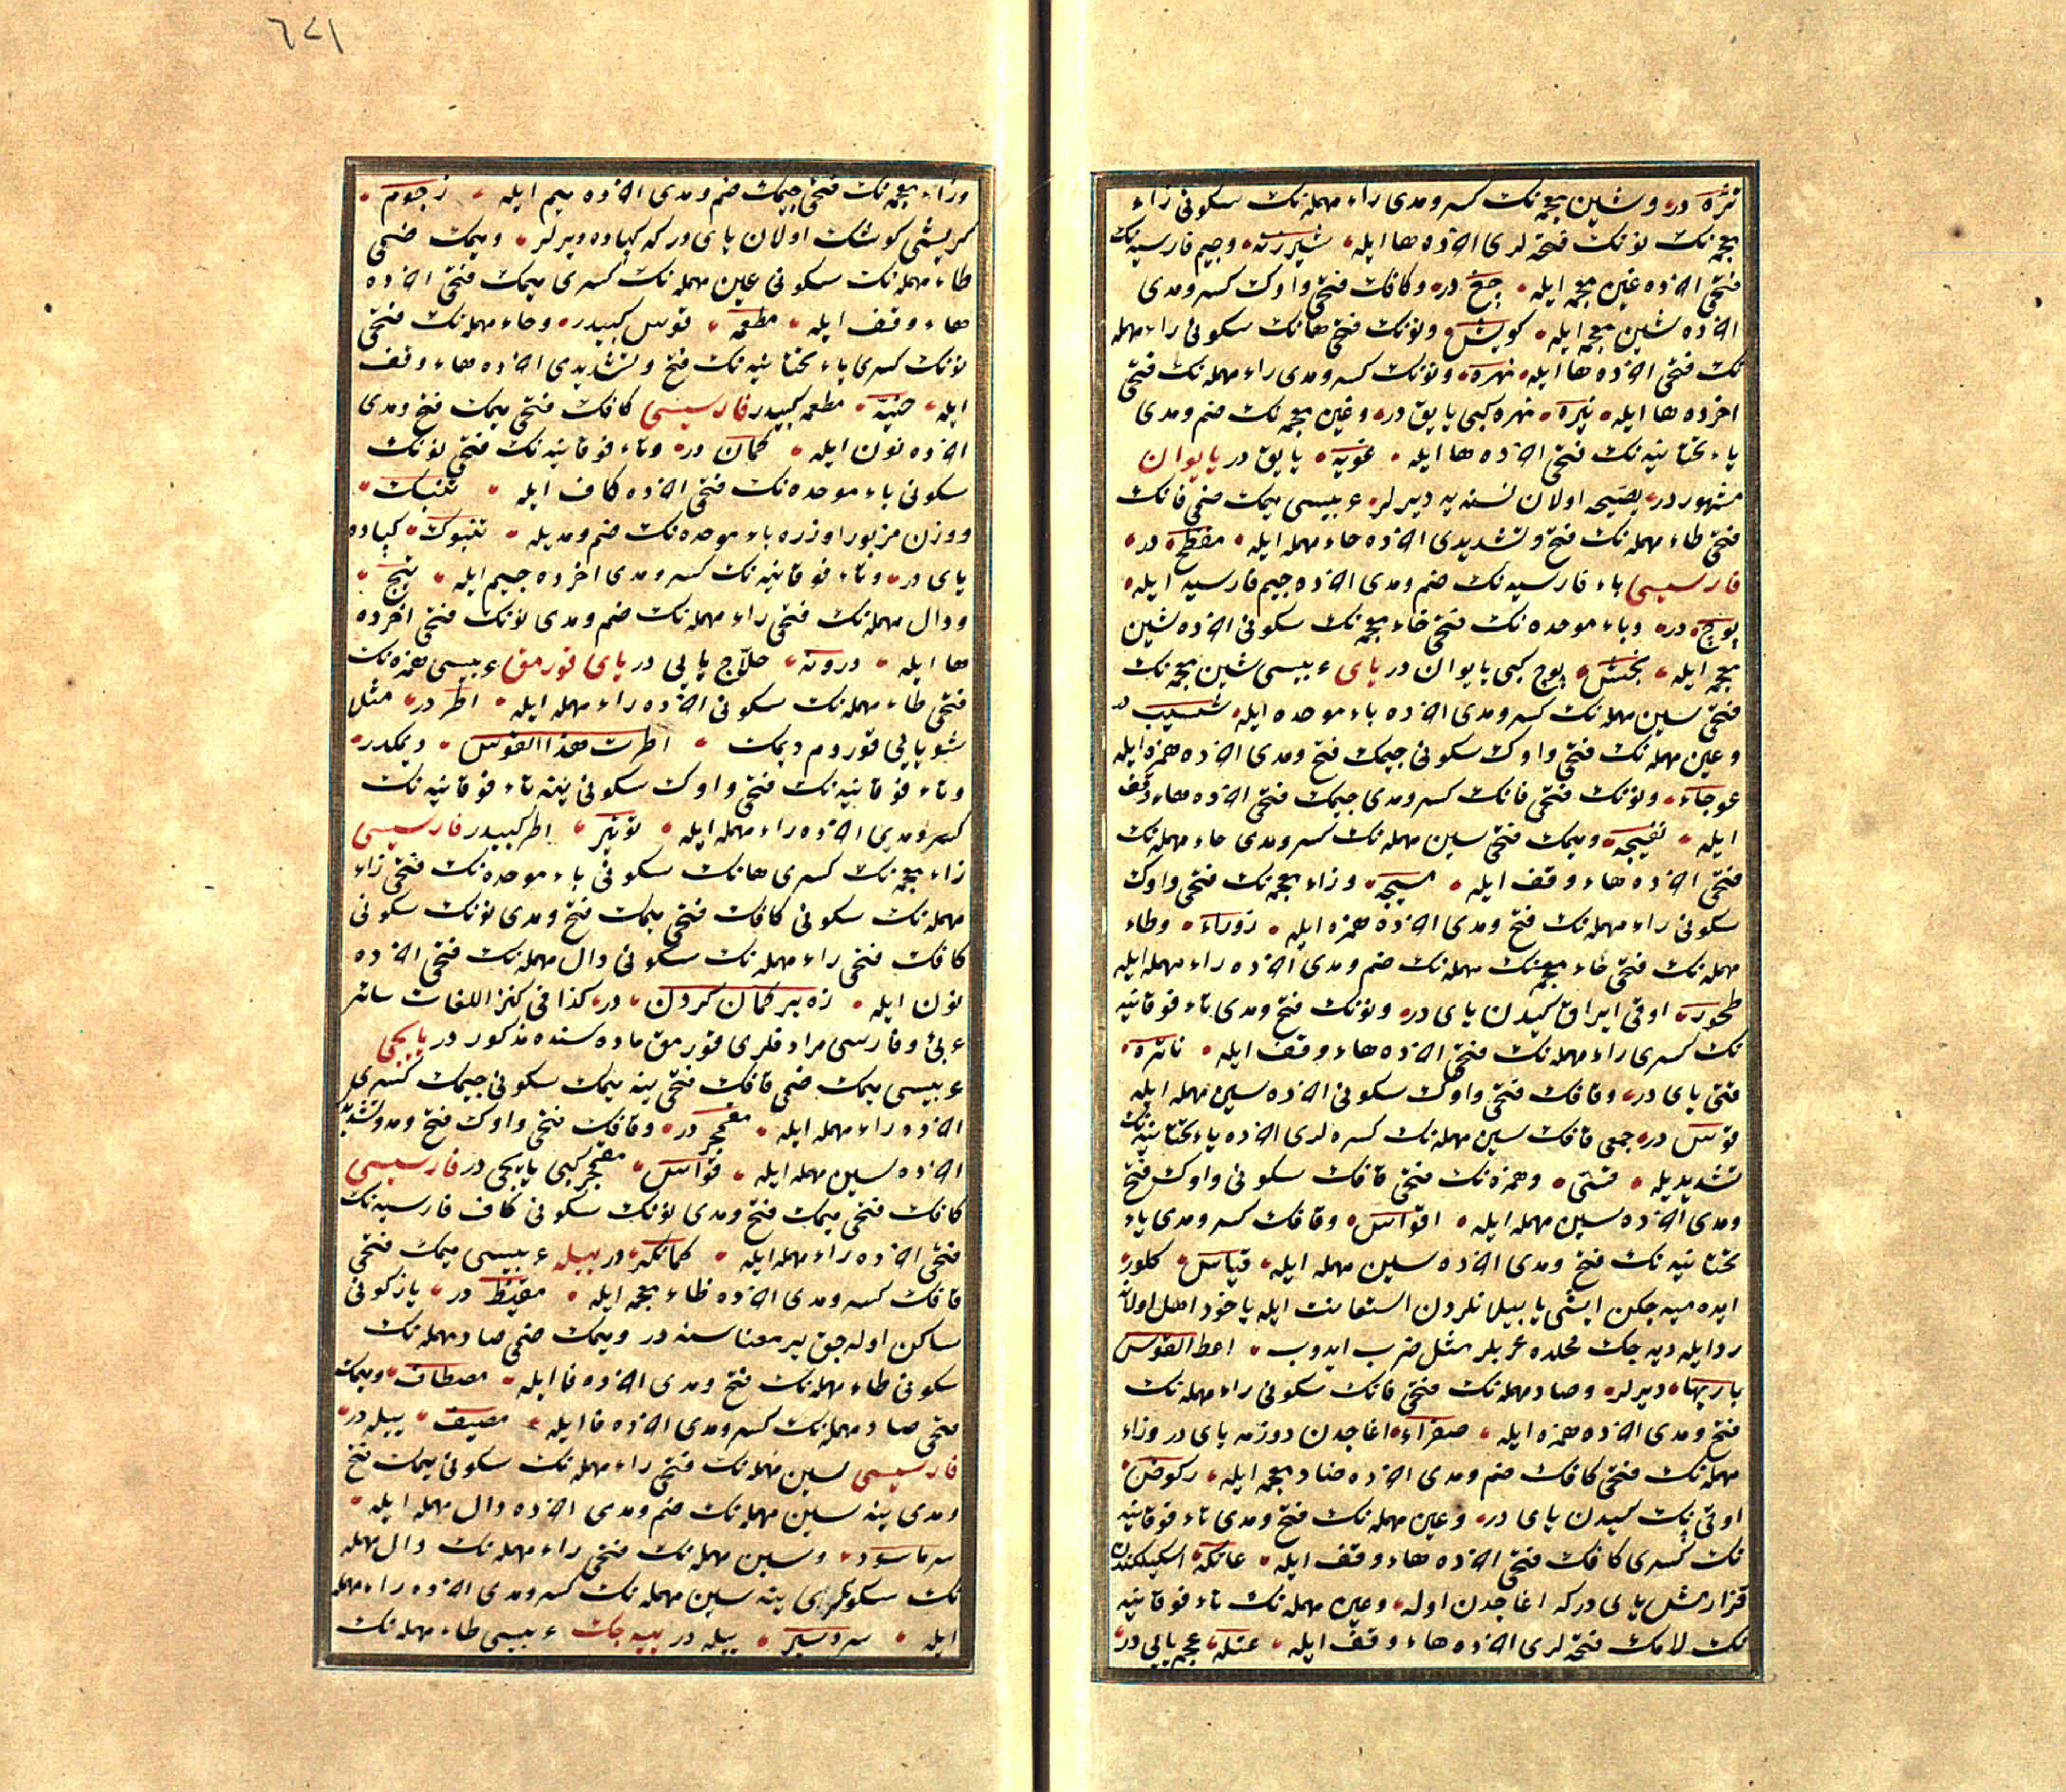 نثره در وشین معجمه نك كسر ومدی راء مهمله نك سكونی زاء
معجمه نك نونك فتحه لری اخرده ها ایله شیرزنه وجیم فارسیه نك
فتحی اخرده غین معجمه ایله چغ در وكافك فتحی واوك كسر ومدی
اخرده شین معجمه ایله كویش ونونك فتحی هانك سكونی راء مهمله
نك فتحی اخرده ها ایله نهره ونونك كسر ومدی راء مهمله نك فتحی
اخرده ها ایله نیره نهره كبی یایق در وغین معجمه نك ضم ومدی
یاء تحتانیه نك فتحی اخرده ها ایله غویه یایق در یایوان
مشهور در یصیجه اولان نسنه یه دیرلر عربیسی میمك ضمی فانك
فتحی طاء مهمله نك فتح وتشدیدی اخرده حاء مهمله ایله مفطح در
فارسیسی باء فارسیه نك ضم ومدی اخرده جیم فارسیه ایله
پوچ در وباء موحده نك فتحی خاء معجمه نك سكونی اخرده شین
معجمه ایله بخش پوچ كبی یایوان در یای عربیسی شین معجمه نك
فتحی سین مهمله نك كسر ومدی اخرده باء موحده ایله شسیب در
وعین مهمله نك فتحی واوك سكونی جیمك فتح ومدی اخرده همزه ایله
عوجاء ونونك فتحی فانك كسر ومدی جیمك فتحی اخرده هاء وقف
ایله نفیجه ومیمك فتحی سین مهمله نك كسر ومدی حاء مهمله نك
فتحی اخرده هاء وقف ایله مسیحه وزاء معجمه نك فتحی واوك
سكونی راء مهمله نك فتح ومدی اخرده همزه ایله زوراء وطاء
مهمله نك فتحی حاء مهمله نك ضم ومدی اخرده راء مهمله ایله
طحور اوقی ایراق كیدن یای در ونونك فتح ومدی تاء فوقانیه
نك كسری راء مهمله نك فتحی اخرده هاء وقف ایله ناتره
قتی یای در وقافك فتحی واوك سكونی اخرده سین مهمله ایله
قوس در جمعی قافك سین مهمله نك كسره لری اخرده یاء تحتانیه نك
تشدیدیله قسی وهمزه نك فتحی قافك سكونی واوك فتح
ومدی اخرده سین مهمله ایله اقواس وقافك كسر ومدی یاء
تحتانیه نك فتح ومدی اخرده سین مهمله ایله قیاس كلور
ایده میه جكن ایشی یا بیلانلردن استعانت ایله یا خود اهل اولانه
ردایله دیه جك محلده عربلر مثل ضرب ایدوب اعط القوس
باریها دیرلر وصاد مهمله نك فتحی فانك سكونی راء مهمله نك
فتح ومدی اخرده همزه ایله صفراء اغاجدن دوزمه یای در وراء
مهمله نك فتحی كافك ضم ومدی اخرده ضاد معجمه ایله ركوض
اوقی پك كیدن یای در وعین مهمله نك فتح ومدی تاء فوقانیه
نك كسری كافك فتحی اخرده هاء وقف ایله عاتكه اسكیلكندن
قزارمش یای در كه اغاجدن اوله وعین مهمله نك تاء فوقانیه
نك لامك فتحه لری اخرده هاء وقف ایله عتله عجم یایی در
٦٧١
وزاء معجمه نك فتحی جیمك ضم ومدی اخرده میم ایله زجوم
كریشی كوشك اولان یای در كه كپاده دیرلر ومیمك ضمی
طاء مهمله نك سكونی عین مهمله نك كسری میمك فتحی اخرده
هاء وقف ایله مطعمه قوس كبیدر وحاء مهمله نك فتحی
نونك كسری یاء تحتانیه نك فتح وتشدیدی اخرده هاء وقف
ایله حنیه مطعمه كبیدر فارسیسی كافك فتحی میمك فتح ومدی
اخرده نون ایله كمان در وتاء فوقانیه نك فتحی نونك
سكونی باء موحده نك فتحی اخرده كاف ایله تنبك
ووزن مزبور اوزره باء موحده نك ضم ومدیله تنبوك كپاده
یای در وتاء فوقانیه نك كسر ومدی اخرده جیم ایله تیج
ودال مهمله نك فتحی راء مهمله نك ضم ومدی نونك فتحی اخرده
ها ایله درونه حلاج یایی در یای قورمق عربیسی همزه نك
فتحی طاء مهمله نك سكونی اخرده راء مهمله ایله اطر در مثلا
شو یایی قوردم دیمك اطرت هذا القوس دیمكدر
وتاء فوقانیه نك فتحی واوك سكونی ینه تاء فوقانیه نك
كسر ومدی اخرده راء مهمله ایله توتیر اطر كبیدر فارسیسی
زاء معجمه نك كسری هانك سكونی باء موحده نك فتحی راء
مهمله نك سكونی كافك فتحی میمك فتح ومدی نونك سكونی
كافك فتحی راء مهمله نك سكونی دال مهمله نك فتحی اخرده
نون ایله زه بر كمان كردن در كذا فی كنز اللغات سائر
عربی وفارسی مرادفلری قورمق ماده سنده مذكور در یایجی
عربیسی میمك ضمی قافك فتحی ینه میمك سكونی جیمك كسری
اخرده راء مهمله ایله مقمجر در وقافك فتحی واوك فتح ومد وتشدیدی
اخرده سین مهمله ایله قواس مقمجر كبی یایجی در فارسیسی
كافك فتحی میمك فتح ومدی نونك سكونی كاف فارسیه نك
فتحی اخرده راء مهمله ایله كمانگر در ییله عربیسی میمك فتحی
قافك كسر ومدی اخرده ظاء معجمه ایله مقیظ در یاز كونی
ساكن اوله جق یر معناسنه در ومیمك ضمی صاد مهمله نك
سكونی طاء مهمله نك فتح ومدی اخرده فا ایله مصطاف ومیمك
فتحی صاد مهمله نك كسر ومدی اخرده فا ایله مصیف ییله در
فارسیسی سین مهمله نك فتحی راء مهمله نك سكونی میمك فتح
ومدی ینه سین مهمله نك ضم ومدی اخرده دال مهمله ایله
سرماسود وسین مهمله نك فتحی راء مهمله نك دال مهمله
نك سكونلری ینه سین مهمله نك كسر ومدی اخرده راء مهمله
ایله سردسیر ییله در ییه جك عربیسی طاء مهمله نك